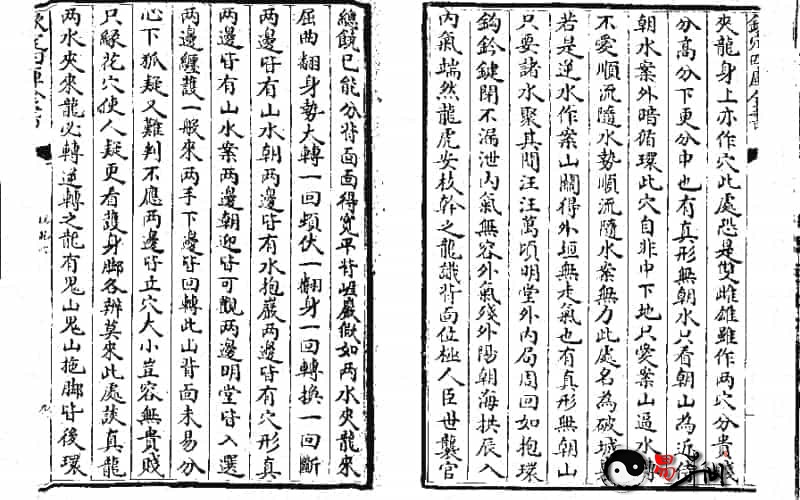 欽定四庫全書
夾龍身上亦作穴此處恐是雙雌雄雖作两穴分貴賤
分高分下更分中也有真形無朝水只看朝山為近侍
朝水案外暗循環此穴自非中下地只愛案山逼水轉
不愛順流隨水勢順流隨水案無力此處名為破城
若是逆水作案山關得外垣無走氣也有真形無朝山
只要諸水聚其間汪汪萬頃明堂外內局周回如抱環
鈎鈐鍵閉不漏泄內氣無容外氣殘外陽朝海拱辰入
內氣端然龍虎安枝幹之龍識背面位極人臣世襲官
總饒已能分背面面得寬平背岨巖假如两水夾龍來
屈曲翻身勢大轉一回頓伏一翻身一回轉換一回斷
两邊皆有山水朝两邊皆有水抱巖两邊皆有穴形真
两邊皆有山水案两邊朝迎皆可觀两邊明堂皆入選
两邊纏護一般來两手下邊皆回轉此山背面未易分
心下狐疑又難判不應两邊皆立穴大小豈容無貴賤
只緣花穴使人疑更看護身脚各辨莫來此處談真龍
两水夾來龍必轉逆轉之龍有鬼山鬼山拖脚皆後環
欽定四庫全書